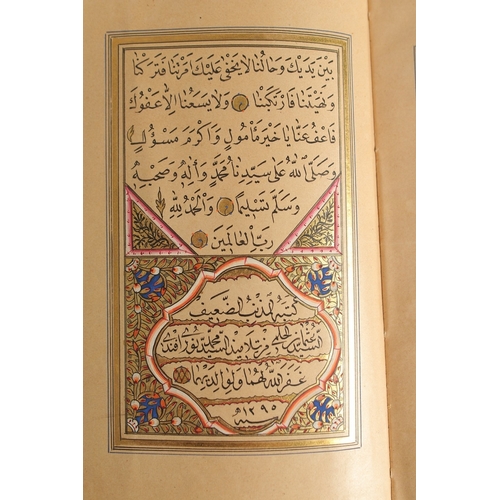 بَيْنَ يَدَيْكَ وَحَالُنَا لَا يَخْفَى عَلَيْكَ اَمَرْتَنَا فَتَرَكْنَا
وَنَهَيْتَنَا فَارْتَكَبْنَا وَلَا يَسَعُنَا اِلَّا عَفْوُكَ
فَاعْفُ عَنَّا يَا خَيْرَ مَأْمُولٍ وَاَكْرَمَ مَسْؤُلٍ
وَصَلَّى اللهُ عَلَى سَيِّدِنَا مُحَمَّدٍ وَاٰلِهِ وَصَحْبِهِ
وَسَلَّمَ تَسْلِيمًا وَالْحَمْدُ لِلّٰهِ
رَبِّ الْعَالَمِينَ
كتبه المذنب الضعيف
السيد محمد نورى افندى
غفر الله لهما ولوالديهما
سنة ١٢٩٥